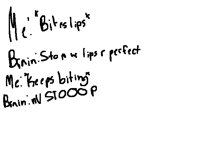 Me: *Bites lips*
Brain: Stop ur lips r perfect
Me: *Keeps biting*
Brain: STOOOP